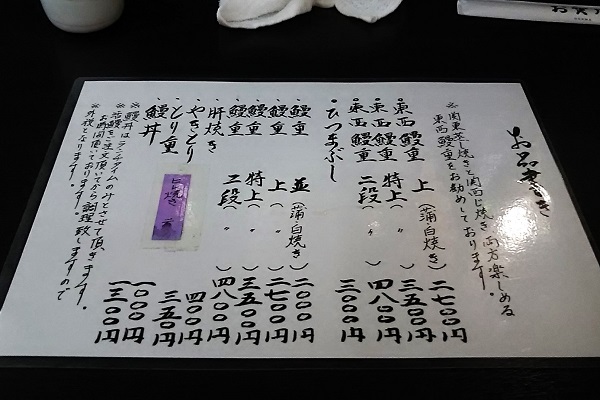 お品書き
※関東蒸し焼きと関西じ焼き、両方楽しめる
東西鰻重をお勧めしております。
・東西鰻重 上(蒲・白焼き) 二七〇〇円
・東西鰻重 特上(〃) 三五〇〇円
・東西鰻重 二段(〃) 四八〇〇円
・ひつまぶし 三〇〇〇円
・鰻重 並(蒲・白焼き) 二〇〇〇円
・鰻重 上(〃) 二七〇〇円
・鰻重 特上(〃) 三五〇〇円
・鰻重 二段(〃) 四八〇〇円
・肝焼き 四〇〇円
・やきとり 三五〇円
・とり重 一〇〇〇円
・鰻丼 一三〇〇円
※鰻丼はランチタイムのみとさせて頂きます。
※若鰻をご注文頂いてから調理致しますので
お時間頂いております。
※外税となります。